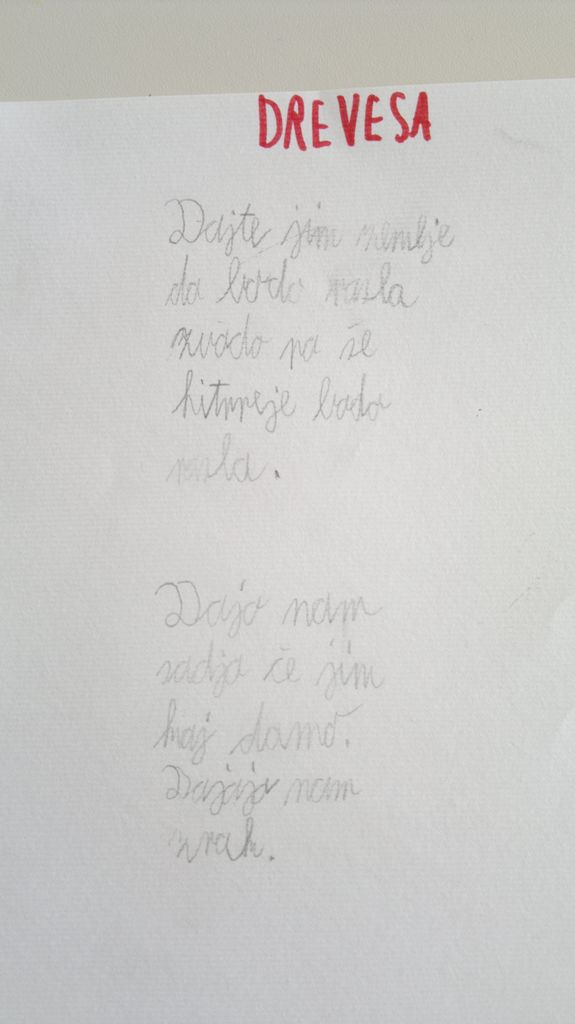 DREVESA
Dajte jim zemlje
da bodo rasla
zvodo pa še
hitrreje bodo
rasla.
Dajo nam
sadja če jim
kaj damo.
Dajajo nam
zrak.